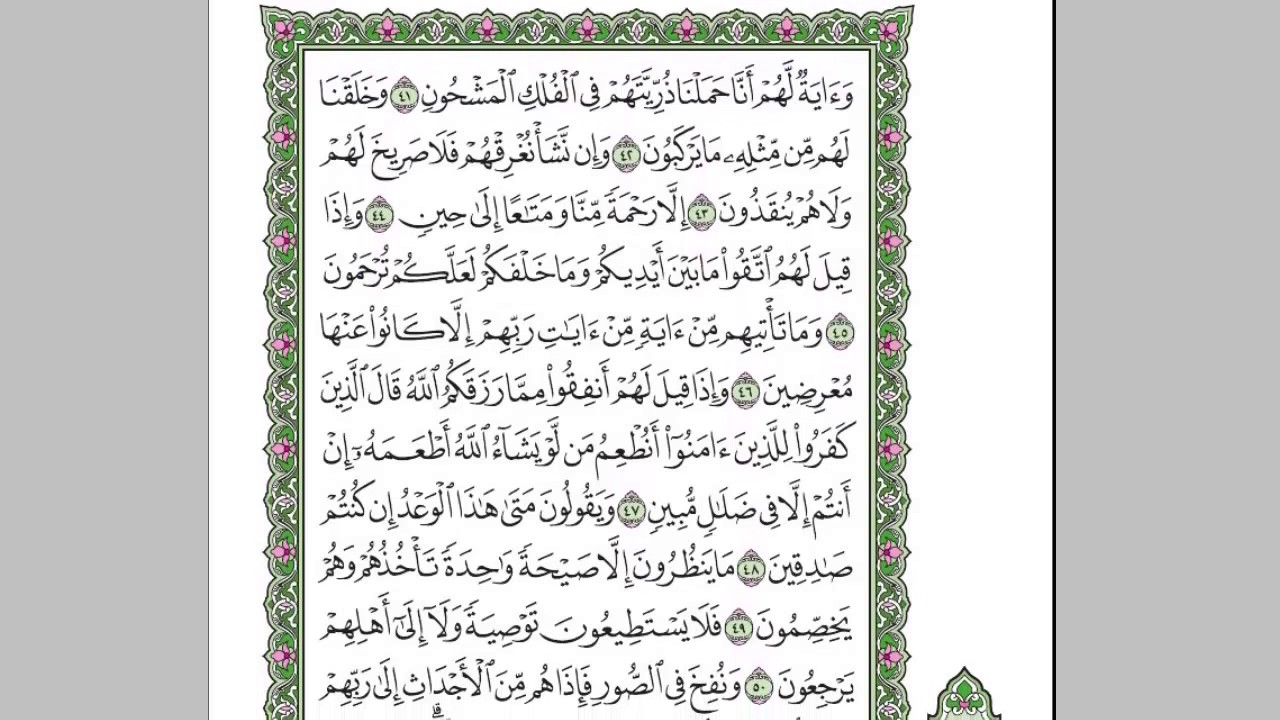 وَءَايَةٌ لَّهُمْ أَنَّا حَمَلْنَا ذُرِّيَّتَهُمْ فِى ٱلْفُلْكِ ٱلْمَشْحُونِ ٤١ وَخَلَقْنَا
لَهُم مِّن مِّثْلِهِۦ مَا يَرْكَبُونَ ٤٢ وَإِن نَّشَأْ نُغْرِقْهُمْ فَلَا صَرِيخَ لَهُمْ
وَلَا هُمْ يُنقَذُونَ ٤٣ إِلَّا رَحْمَةً مِّنَّا وَمَتَـٰعًا إِلَىٰ حِينٍ ٤٤ وَإِذَا
قِيلَ لَهُمُ ٱتَّقُوا۟ مَا بَيْنَ أَيْدِيكُمْ وَمَا خَلْفَكُمْ لَعَلَّكُمْ تُرْحَمُونَ
٤٥ وَمَا تَأْتِيهِم مِّنْ ءَايَةٍ مِّنْ ءَايَـٰتِ رَبِّهِمْ إِلَّا كَانُوا۟ عَنْهَا
مُعْرِضِينَ ٤٦ وَإِذَا قِيلَ لَهُمْ أَنفِقُوا۟ مِمَّا رَزَقَكُمُ ٱللَّهُ قَالَ ٱلَّذِينَ
كَفَرُوا۟ لِلَّذِينَ ءَامَنُوٓا۟ أَنُطْعِمُ مَن لَّوْ يَشَآءُ ٱللَّهُ أَطْعَمَهُۥٓ إِنْ
أَنتُمْ إِلَّا فِى ضَلَـٰلٍ مُّبِينٍ ٤٧ وَيَقُولُونَ مَتَىٰ هَـٰذَا ٱلْوَعْدُ إِن كُنتُمْ
صَـٰدِقِينَ ٤٨ مَا يَنظُرُونَ إِلَّا صَيْحَةً وَٰحِدَةً تَأْخُذُهُمْ وَهُمْ
يَخِصِّمُونَ ٤٩ فَلَا يَسْتَطِيعُونَ تَوْصِيَةً وَلَآ إِلَىٰٓ أَهْلِهِمْ
يَرْجِعُونَ ٥٠ وَنُفِخَ فِى ٱلصُّورِ فَإِذَا هُم مِّنَ ٱلْأَجْدَاثِ إِلَىٰ رَبِّهِمْ